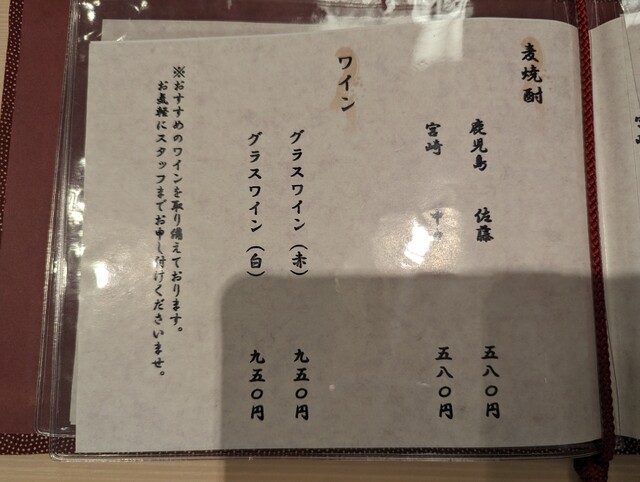 麦焼酎
鹿児島 佐藤 五八〇円
宮崎 五八〇円
ワイン
グラスワイン(赤) 九五〇円
グラスワイン(白) 九五〇円
※おすすめのワインを取り備えております。
お気軽にスタッフまでお申し付けくださいませ。